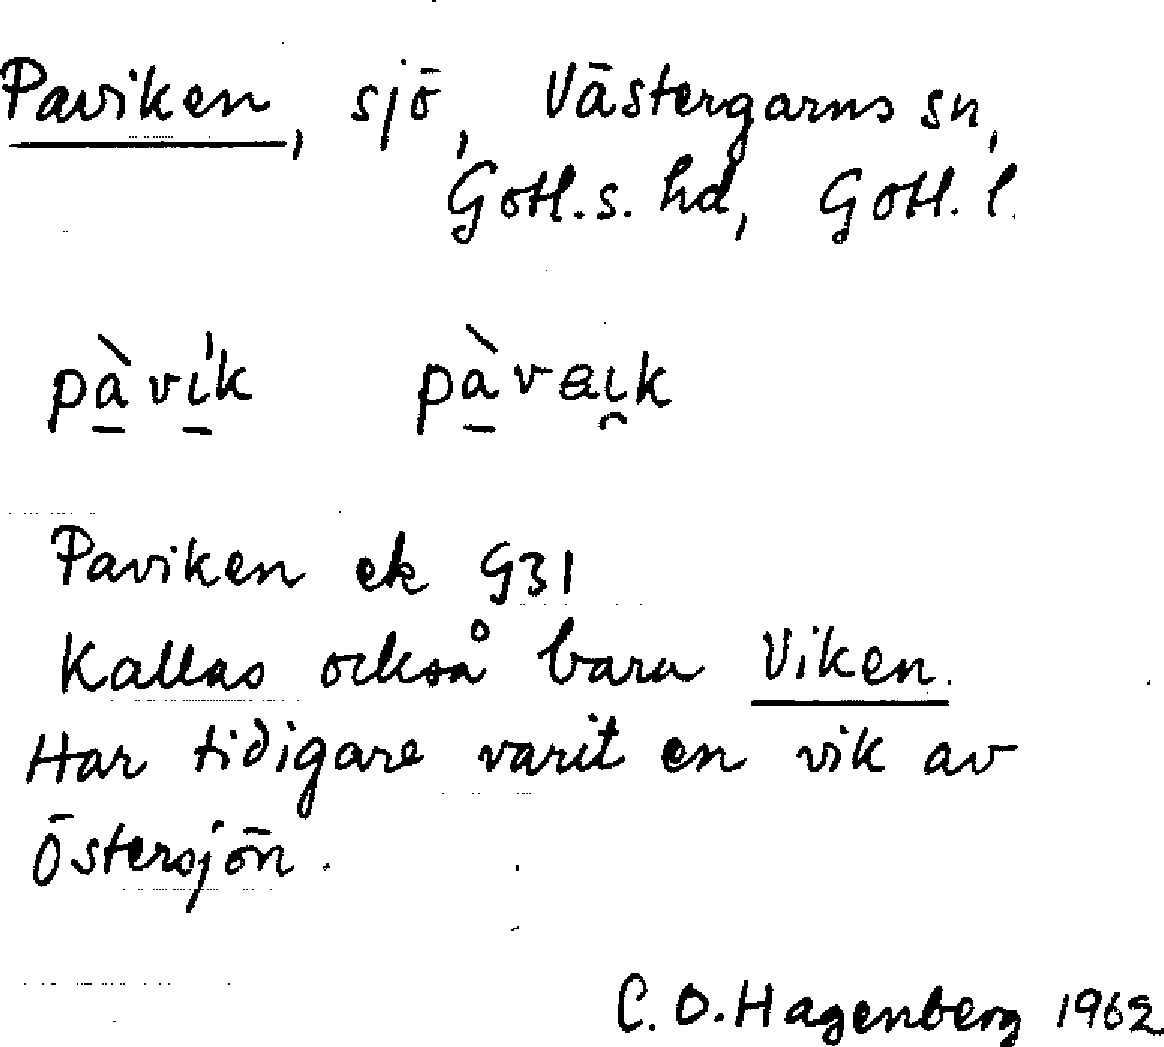 Paviken, sjö, Västergarns sn,
Gotl. s. hd, Gotl. l.
pàvík pàvaı̯k
Paviken ek 931
Kallas också bara Viken.
Har tidigare varit en vik av
Östersjön.
C. O. Hagenberg 1962